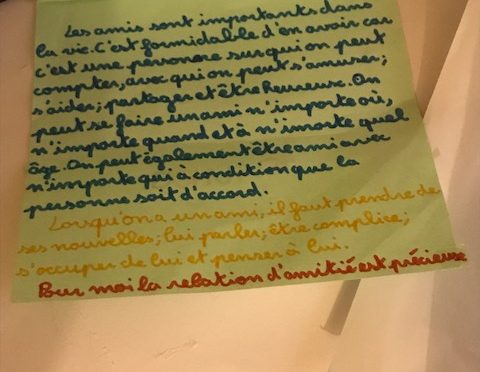 Les amis sont importants dans
la vie. C'est formidable d'en avoir car
c'est une personne sur qui on peut
compter, avec qui on peut s'amuser;
s'aider; partager et être heureuse. On
peut se faire un ami n'importe où,
n'importe quand et à n'imorte quel
âge. On peut également être ami avec
n'importe qui à condition que la
personne soit d'accord.
Lorsqu'on a un ami, il faut prendre de
ses nouvelles; lui parler; être complice;
s'occuper de lui et penser à lui.
Pour moi la relation d'amitié est précieuse